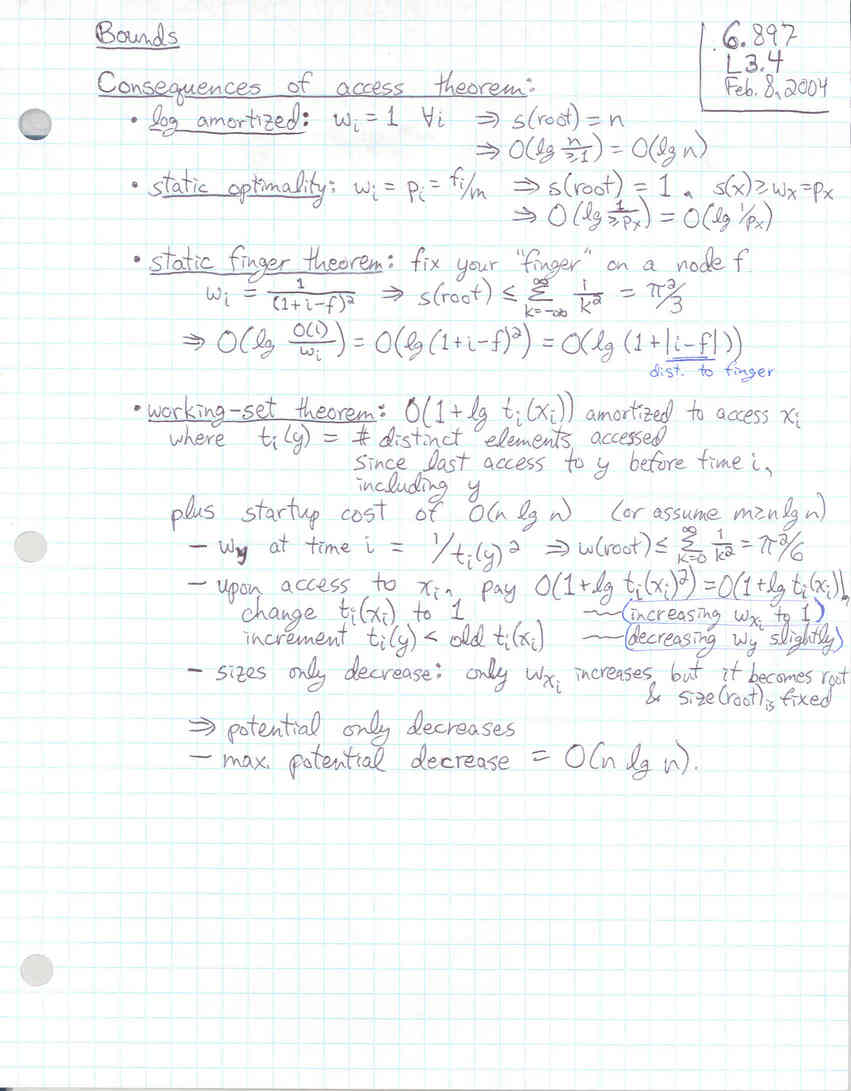 Bounds
6.897
L3.4
Feb. 8, 2004
Consequences of access theorem:
• log amortized: wᵢ = 1 ∀i ⇒ s(root) = n
⇒ O(lg n/≥1) = O(lg n)
• static optimality: wᵢ = pᵢ = fᵢ/m ⇒ s(root) = 1, s(x) ≥ wₓ = pₓ
⇒ O(lg 1/≥pₓ) = O(lg 1/pₓ)
• static finger theorem: fix your "finger" on a node f
wᵢ = 1/(1+i-f)² ⇒ s(root) ≤ ∑_{k=-∞}^{∞} 1/k² = π²/3
⇒ O(lg O(1)/wᵢ) = O(lg (1+i-f)²) = O(lg (1+|i-f|))
dist. to finger
• working-set theorem: O(1+lg tᵢ(xᵢ)) amortized to access xᵢ
where tᵢ(y) = # distinct elements accessed
since last access to y before time i,
including y
plus startup cost of O(n lg n) (or assume m≥n lg n)
– w_y at time i = 1/tᵢ(y)² ⇒ w(root) ≤ ∑_{k=0}^{∞} 1/k² = π²/6
– upon access to xᵢ, pay O(1+lg tᵢ(xᵢ)²) = O(1+lg tᵢ(xᵢ)),
change tᵢ(xᵢ) to 1 ~ (increasing w_{xᵢ} to 1)
increment tᵢ(y) < old tᵢ(xᵢ) ~ (decreasing w_y slightly)
– sizes only decrease: only w_{xᵢ} increases, but it becomes root
& size(root) is fixed
⇒ potential only decreases
– max. potential decrease = O(n lg n).